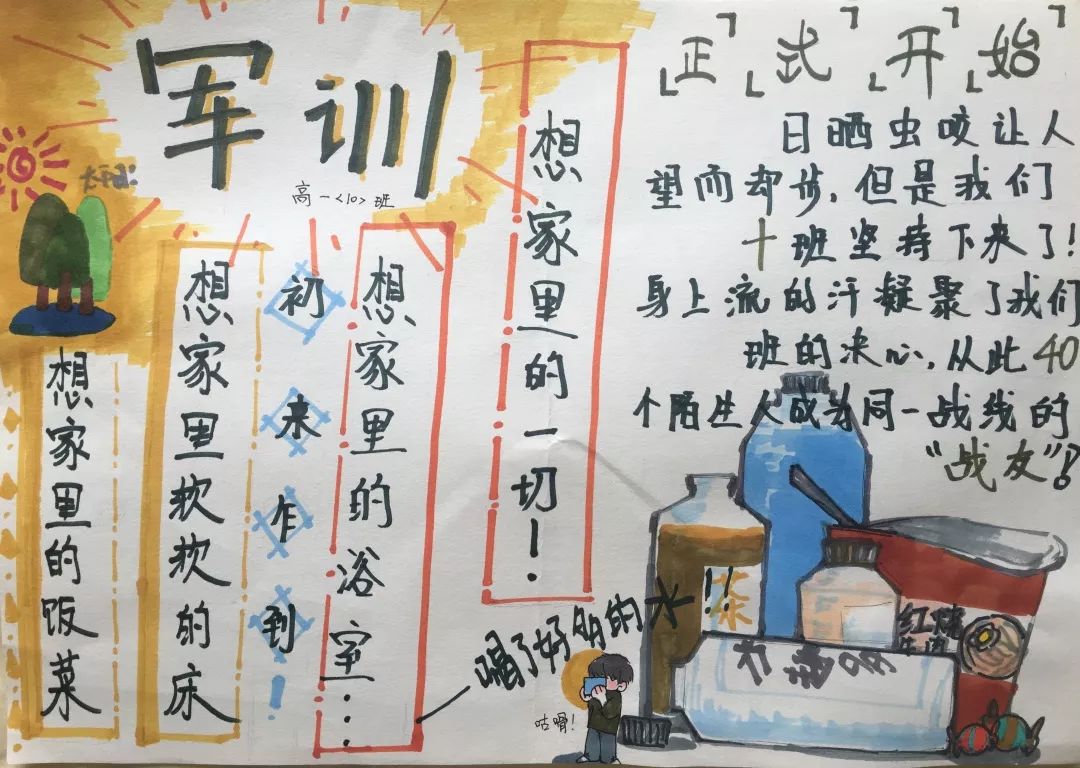 军训
高一<10>班
太阳:
想家里的饭菜
想家里软软的床
初来乍到!
想家里的浴室...
想家里的一切!
正式开始
日晒虫咬让人
望而却步,但是我们
十班坚持下来了!
身上流的汗凝聚了我们
班的决心,从此40
个陌生人成为同一战线的
“战友”!
喝了好多的水!!
咕噜!
茶
红烧
牛肉